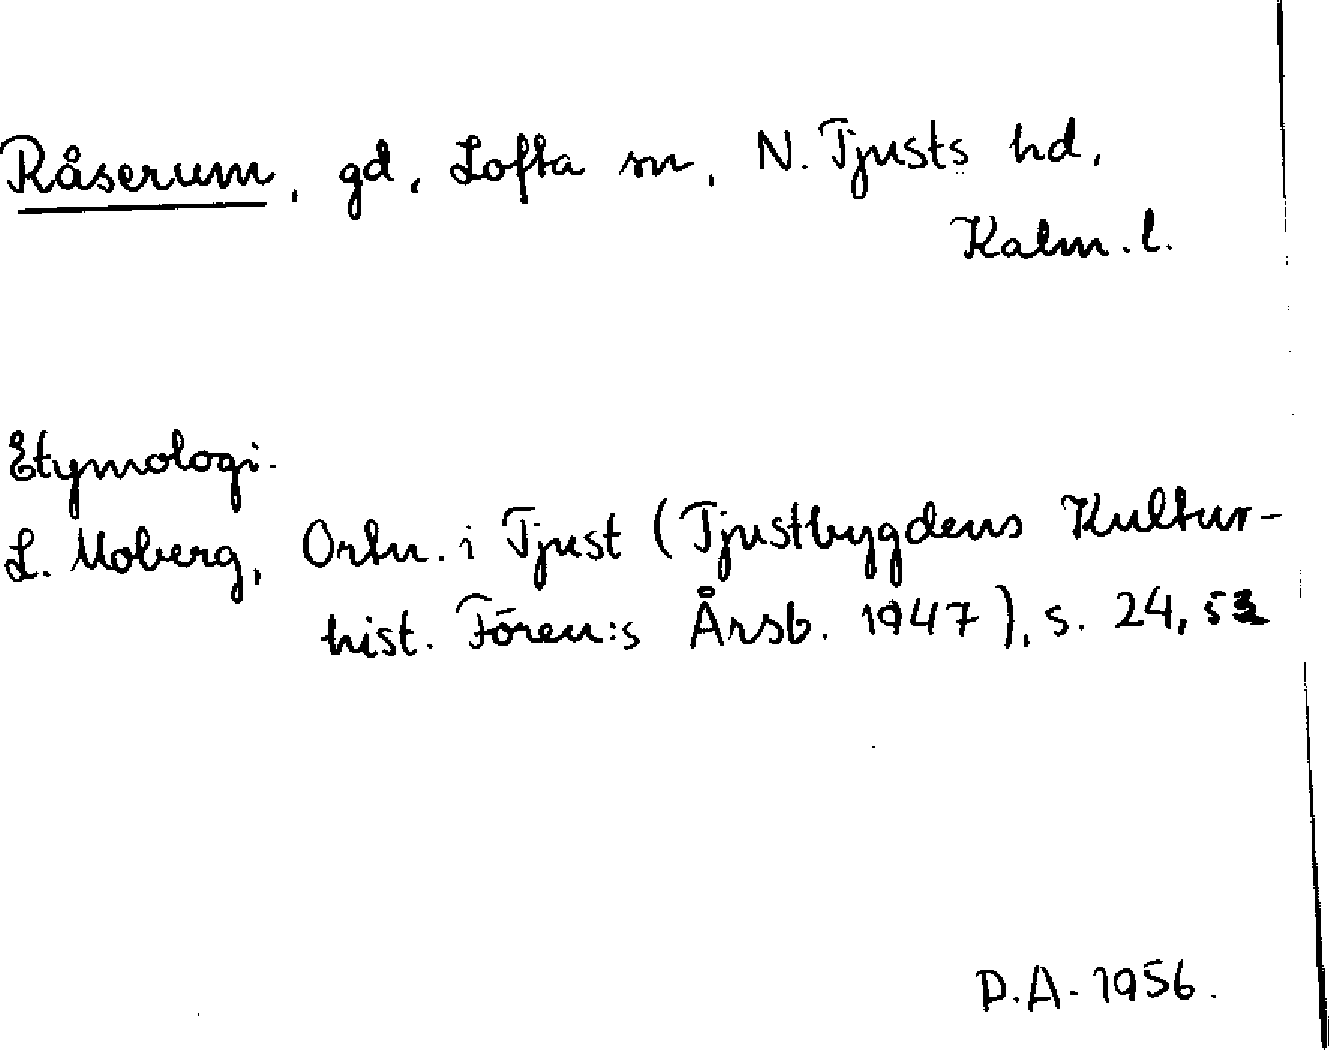 Råserum, gd, Lofta sn, N. Tjusts hd,
Kalm. l.
Etymologi.
L. Moberg, Ortn. i Tjust (Tjustbygdens Kultur-
hist. Fören:s Årsb. 1947), s. 24,
D.A. 1956.